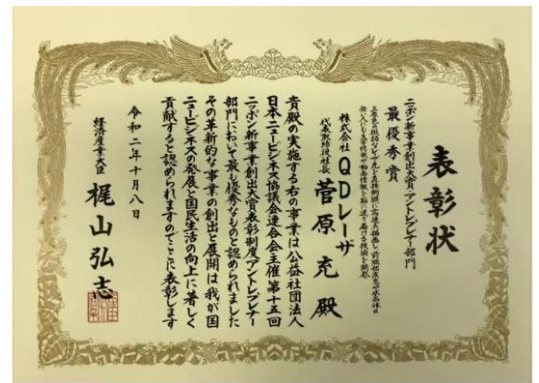 表彰状
ニッポン新事業創出大賞アントレプレナー部門
最優秀賞
株式会社QDレーザ
代表取締役社長
菅原充殿
貴殿の実施する右の事業は公益社団法人
日本ニュービジネス協議会連合会主催第十五回
ニッポン新事業創出大賞表彰制度アントレプレナー
部門において最も優秀なものと認められました
その革新的な事業の創出と展開は我が国
ニュービジネスの発展と国民生活の向上に著しく
貢献すると認められますのでここに表彰します
令和二年十月八日
経済産業大臣
梶山弘志